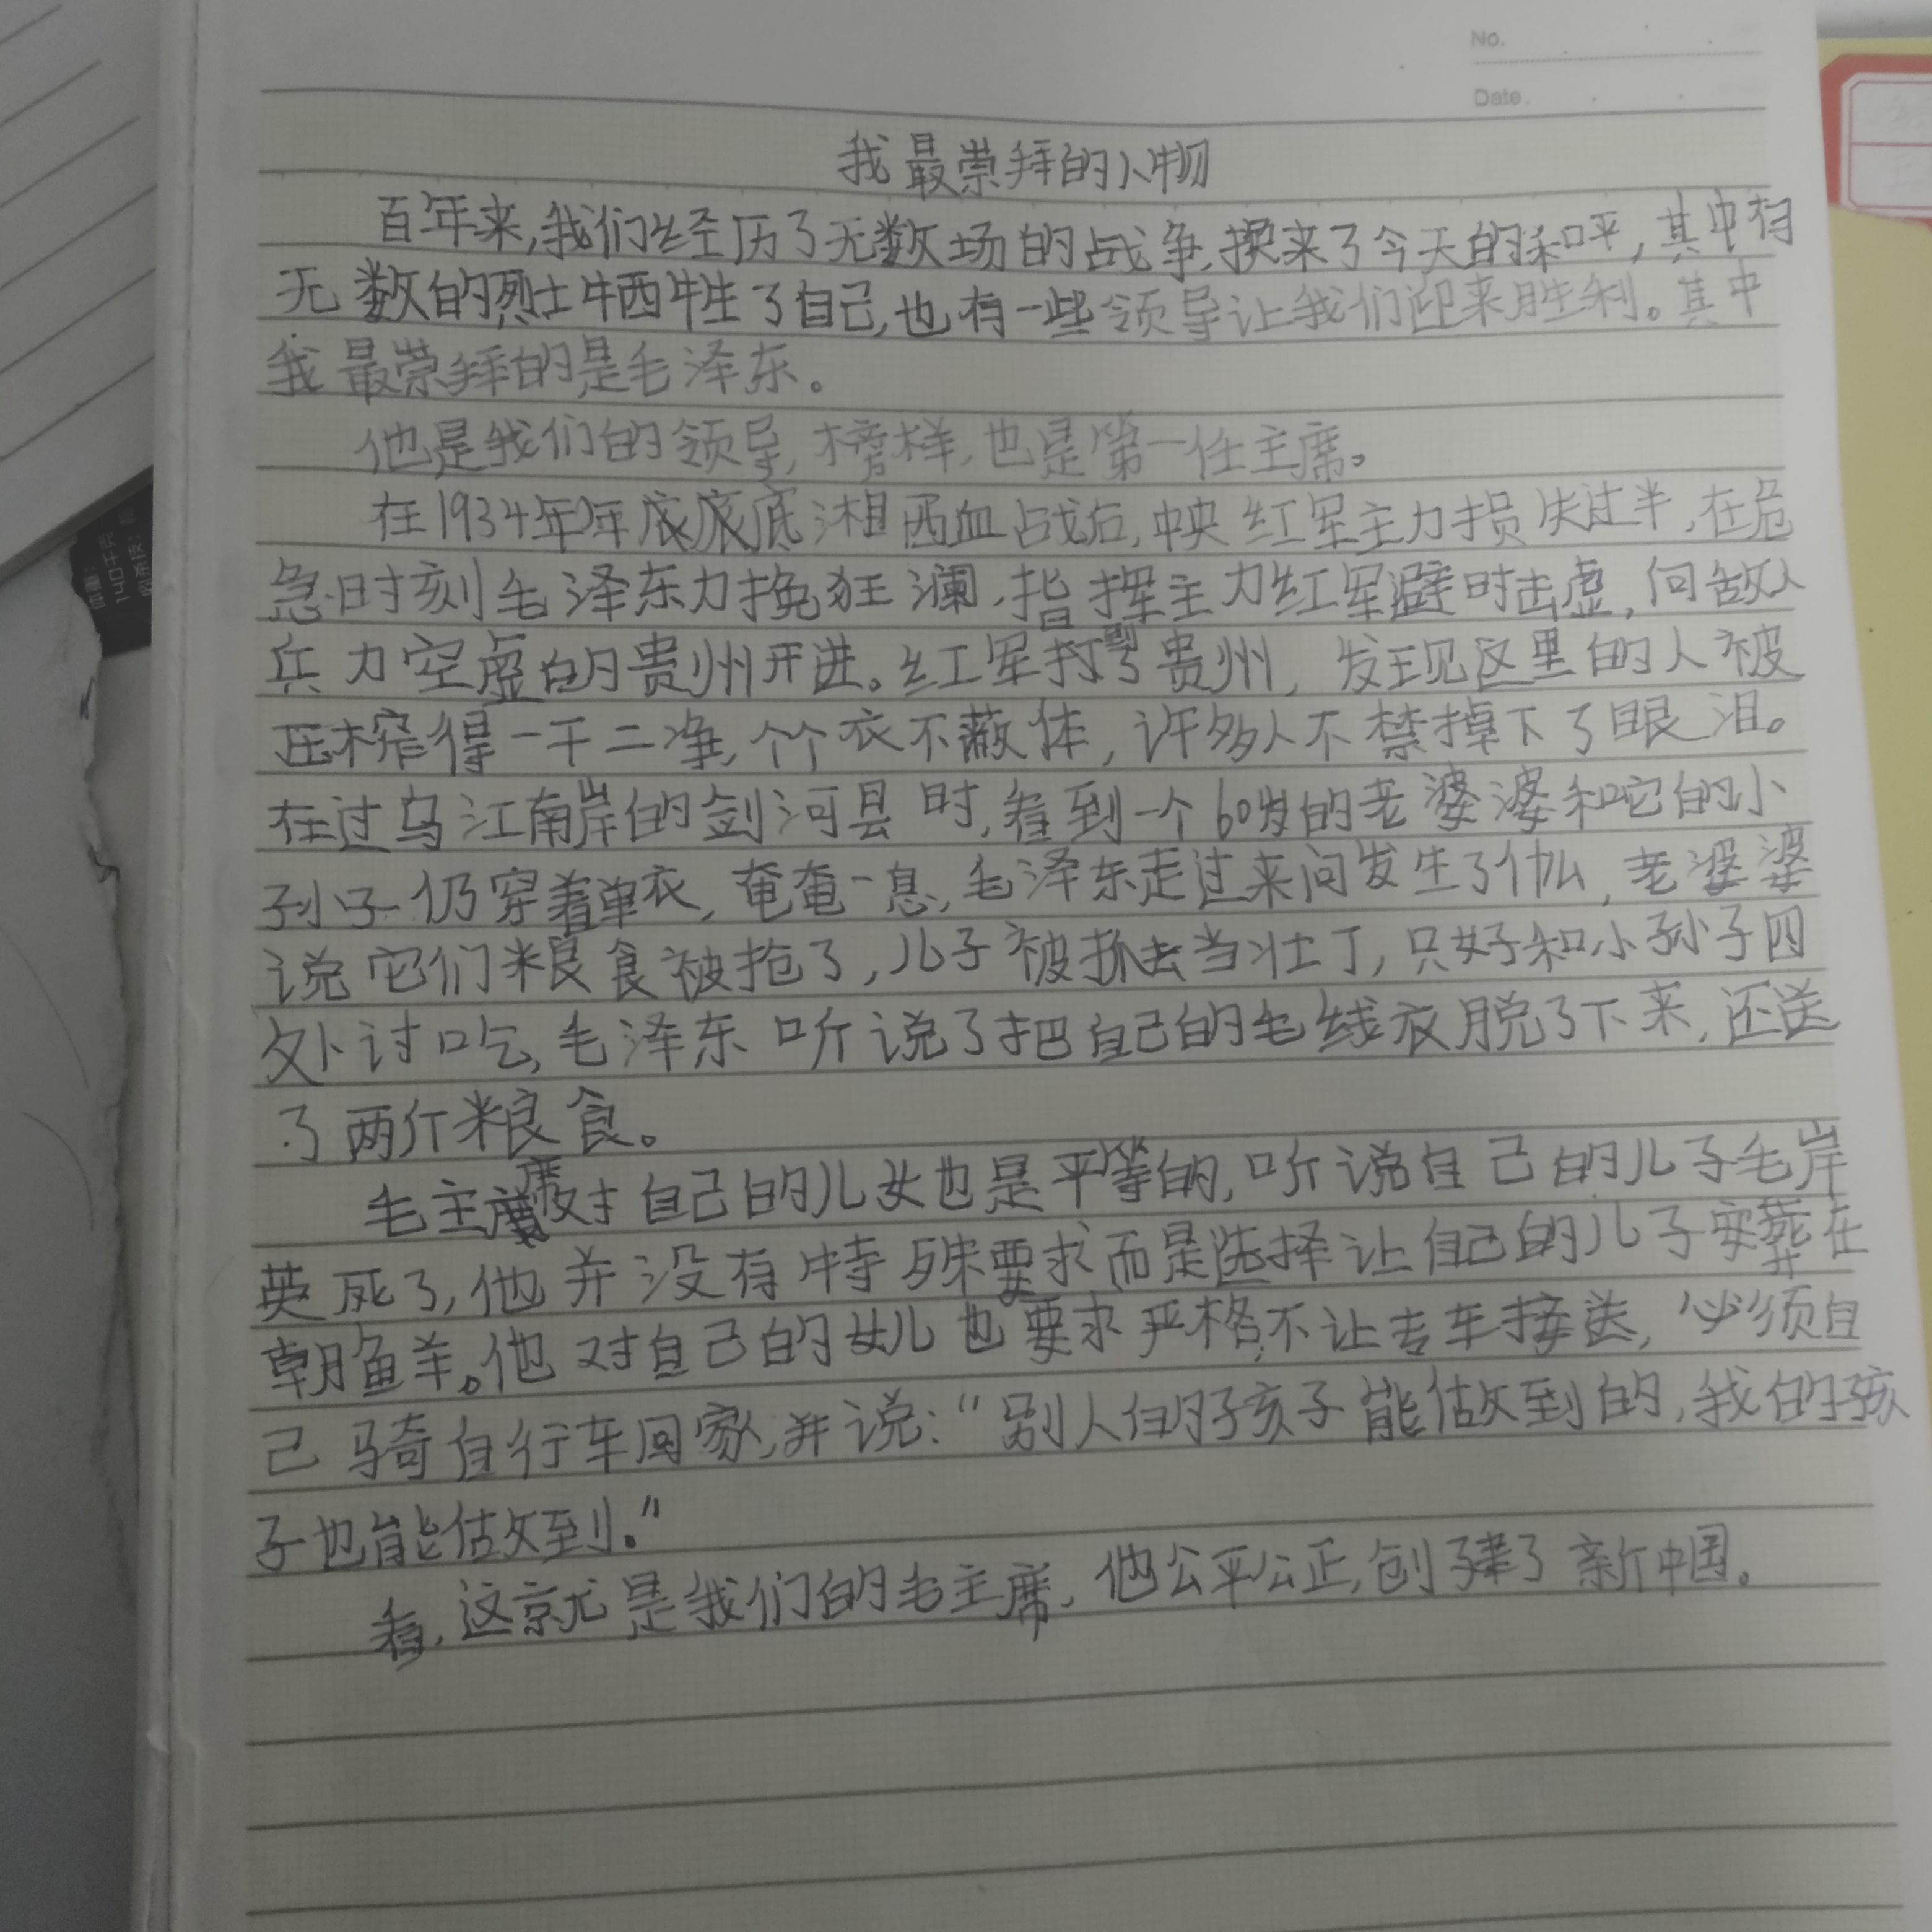 No.
Date.
我最崇拜的人物
百年来,我们经历了无数场的战争,换来了今天的和平,其中有
无数的烈士牺牲了自己,也有一些领导让我们迎来胜利。其中
我最崇拜的是毛泽东。
他是我们的领导,榜样,也是第一任主席。
在1934年底湘西血战后,中央红军主力损失过半,在危
急时刻毛泽东力挽狂澜,指挥主力红军避时击虚,向敌人
兵力空虚的贵州开进。红军打到了贵州,发现这里的人被
压榨得一干二净,个个衣不蔽体,许多人不禁掉下了眼泪。
在过乌江南岸的剑河县时,看到一个60岁的老婆婆和它的小
孙子仍穿着单衣,奄奄一息,毛泽东走过来问发生了什么,老婆婆
说它们粮食被抢了,儿子被抓去当壮丁,只好和小孙子四
处讨吃,毛泽东听说了把自己的毛线衣脱了下来,还送
了两斤粮食。
毛主席对自己的儿女也是平等的,听说自己的儿子毛岸
英死了,他并没有特殊要求而是选择让自己的儿子安葬在
朝鱼羊。他对自己的女儿也要求严格,不让专车接送,必须自
己骑自行车回家,并说:“别人的孩子能做到的,我的孩
子也能做到.”
看,这就是我们的毛主席,他公平公正,创建了新中国。
140千克